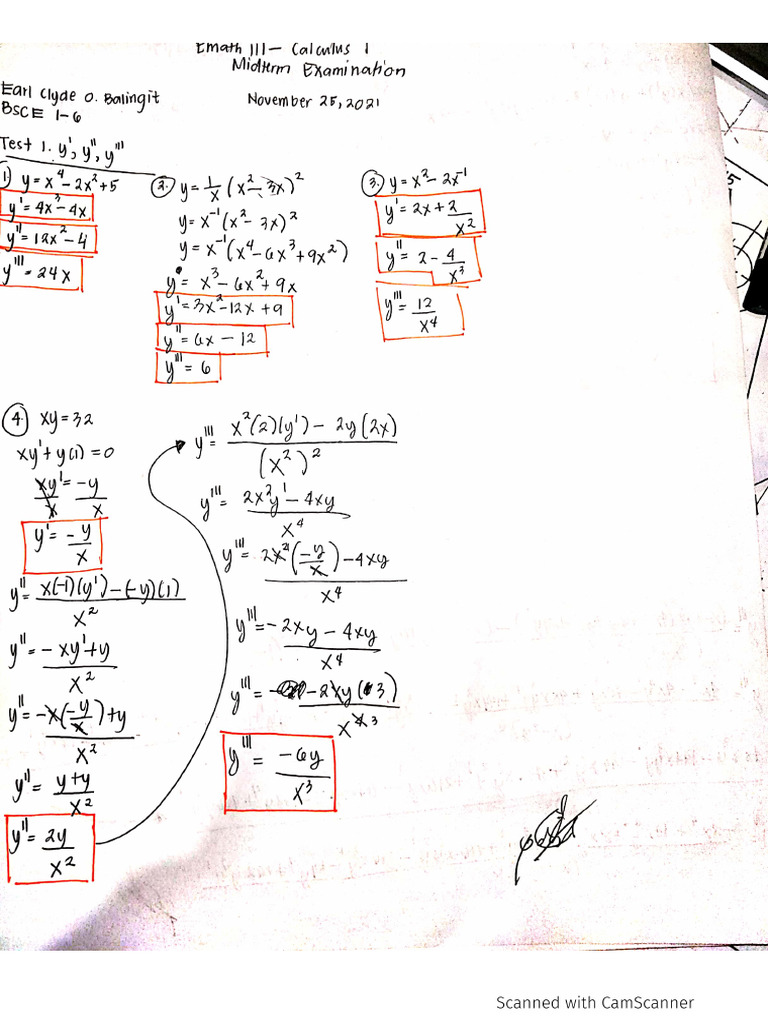 Emath III – Calculus 1
Midterm Examination
Earl Clyde O. Balingit
BSCE 1-6
November 25, 2021
Test 1. y', y", y'''
1) y = x⁴ - 2x² + 5
y' = 4x³ - 4x
y" = 12x² - 4
y''' = 24x
2. y = 1/x (x² - 3x)²
y = x⁻¹(x² - 3x)²
y = x⁻¹(x⁴ - 6x³ + 9x²)
y = x³ - 6x² + 9x
y' = 3x² - 12x + 9
y" = 6x - 12
y''' = 6
3. y = x² - 2x⁻¹
y' = 2x + 2/x²
y" = 2 - 4/x³
y''' = 12/x⁴
4. xy = 32
xy' + y(1) = 0
xy'/x = -y/x
y' = -y/x
y" = x(-1)(y') - (-y)(1)/x²
y" = -xy' + y/x²
y" = -x(-y/x) + y/x²
y" = y + y/x²
y" = 2y/x²
y''' = x²(2)(y') - 2y(2x)/(x²)²
y''' = 2x²y' - 4xy/x⁴
y''' = 2x²(-y/x) - 4xy/x⁴
y''' = -2xy - 4xy/x⁴
y''' = -2xy(3)/x⁴ ³
y''' = -6y/x³
Scanned with CamScanner